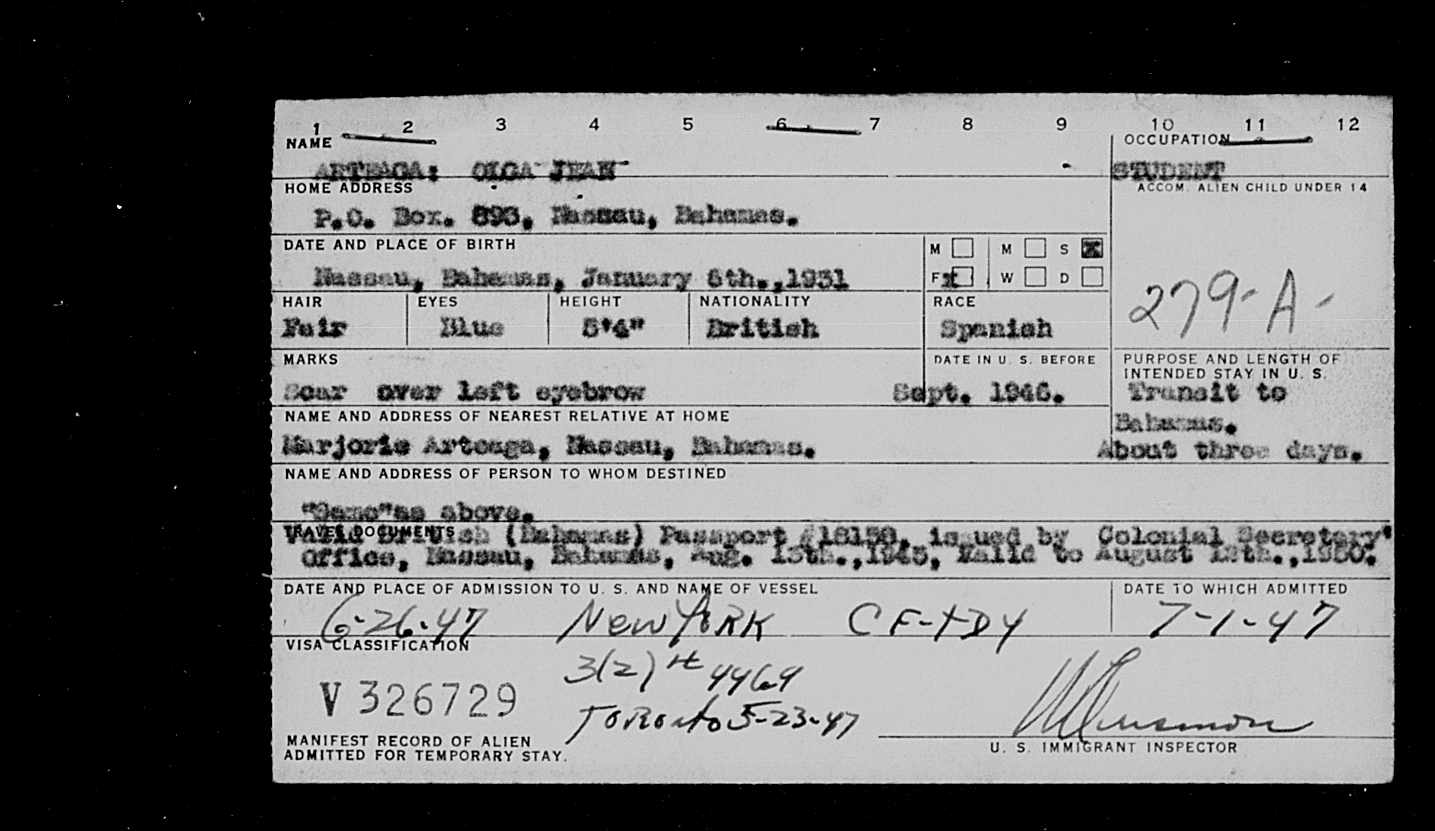 1 2 3 4 5 6 7 8 9 10 11 12
NAME OCCUPATION
ARTEAGA: OLGA JEAN STUDENT
HOME ADDRESS ACCOM. ALIEN CHILD UNDER 14
P.O. Box. 893, Nassau, Bahamas.
DATE AND PLACE OF BIRTH M M S X
Nassau, Bahamas, January 6th.,1931 F x W D
279-A-
HAIR EYES HEIGHT NATIONALITY RACE
Fair Blue 5'4" British Spanish
MARKS DATE IN U. S. BEFORE PURPOSE AND LENGTH OF
INTENDED STAY IN U. S.
Scar over left eyebrow Sept. 1946. Transit to
NAME AND ADDRESS OF NEAREST RELATIVE AT HOME Bahamas.
Marjorie Arteaga, Nassau, Bahamas. About three days.
NAME AND ADDRESS OF PERSON TO WHOM DESTINED
"Same"as above.
TRAVEL DOCUMENTS
Valid British (Bahamas) Passport #18158, issued by Colonial Secretary'
Office, Nassau, Bahamas, Aug. 13th.,1945, Valid to August 12th.,1950.
DATE AND PLACE OF ADMISSION TO U. S. AND NAME OF VESSEL DATE TO WHICH ADMITTED
6-26-47 New YORK CF-TDY 7-1-47
VISA CLASSIFICATION
3(2) # 4469
V 326729
TORONTO 5-23-47
MANIFEST RECORD OF ALIEN U. S. IMMIGRANT INSPECTOR
ADMITTED FOR TEMPORARY STAY.